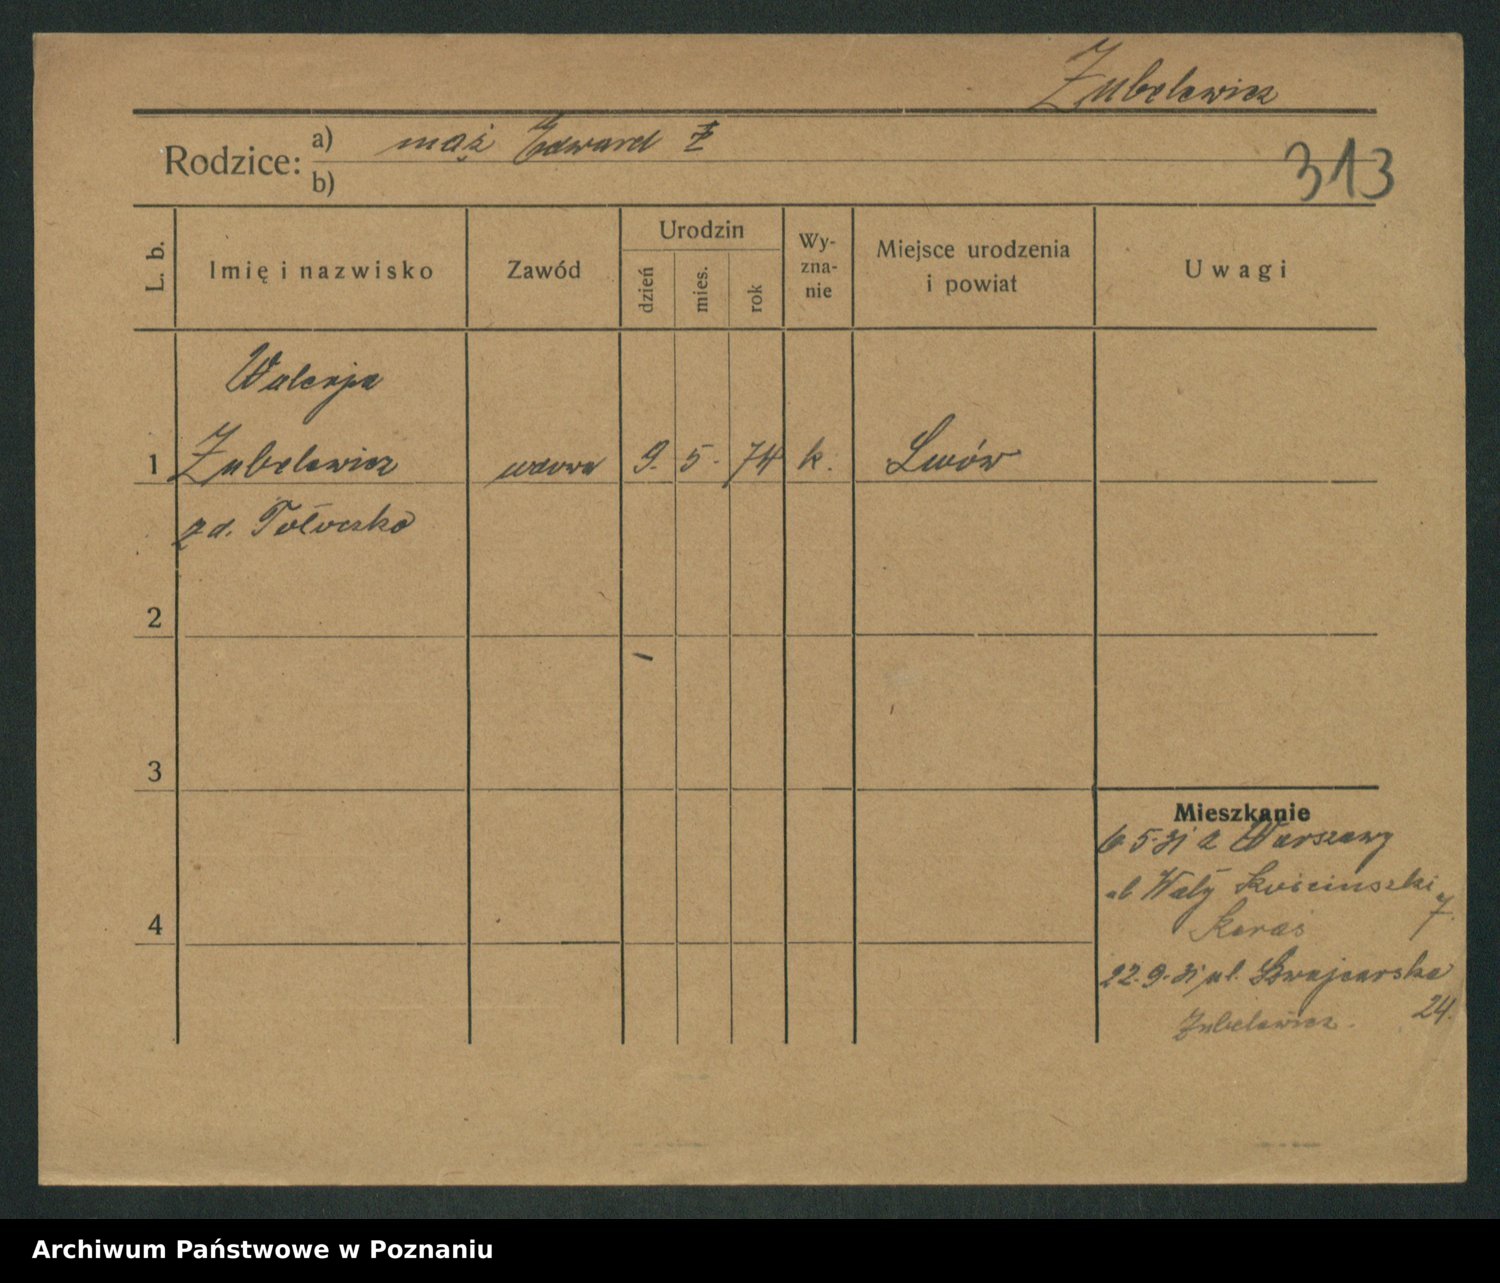 Żubelewicz
Rodzice: a) mąż Edward Ż
b)
313
L. b.
Imię i nazwisko
Zawód
Urodzin
dzień
mies.
rok
Wy-
zna-
nie
Miejsce urodzenia
i powiat
Uwagi
Walerja
1 Żubelewicz wdowa 9. 5. 74 k. Lwów
zd. Tołoczko
2
3
4
Mieszkanie
6 5.31 z Warszawy
ul Wały Kościuszki
7.
Karaś
22.9.31 ul. Szwajcarska
24.
Żubelewicz.
Archiwum Państwowe w Poznaniu